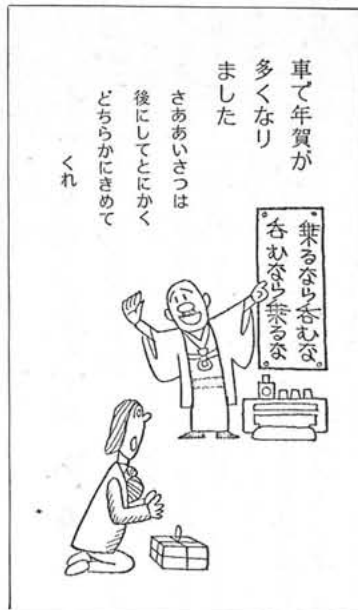 車で年賀が
多くなり
ました
さああいさつは
後にしてとにかく
どちらかにきめて
くれ
乗るなら呑むな
呑むなら乗るな